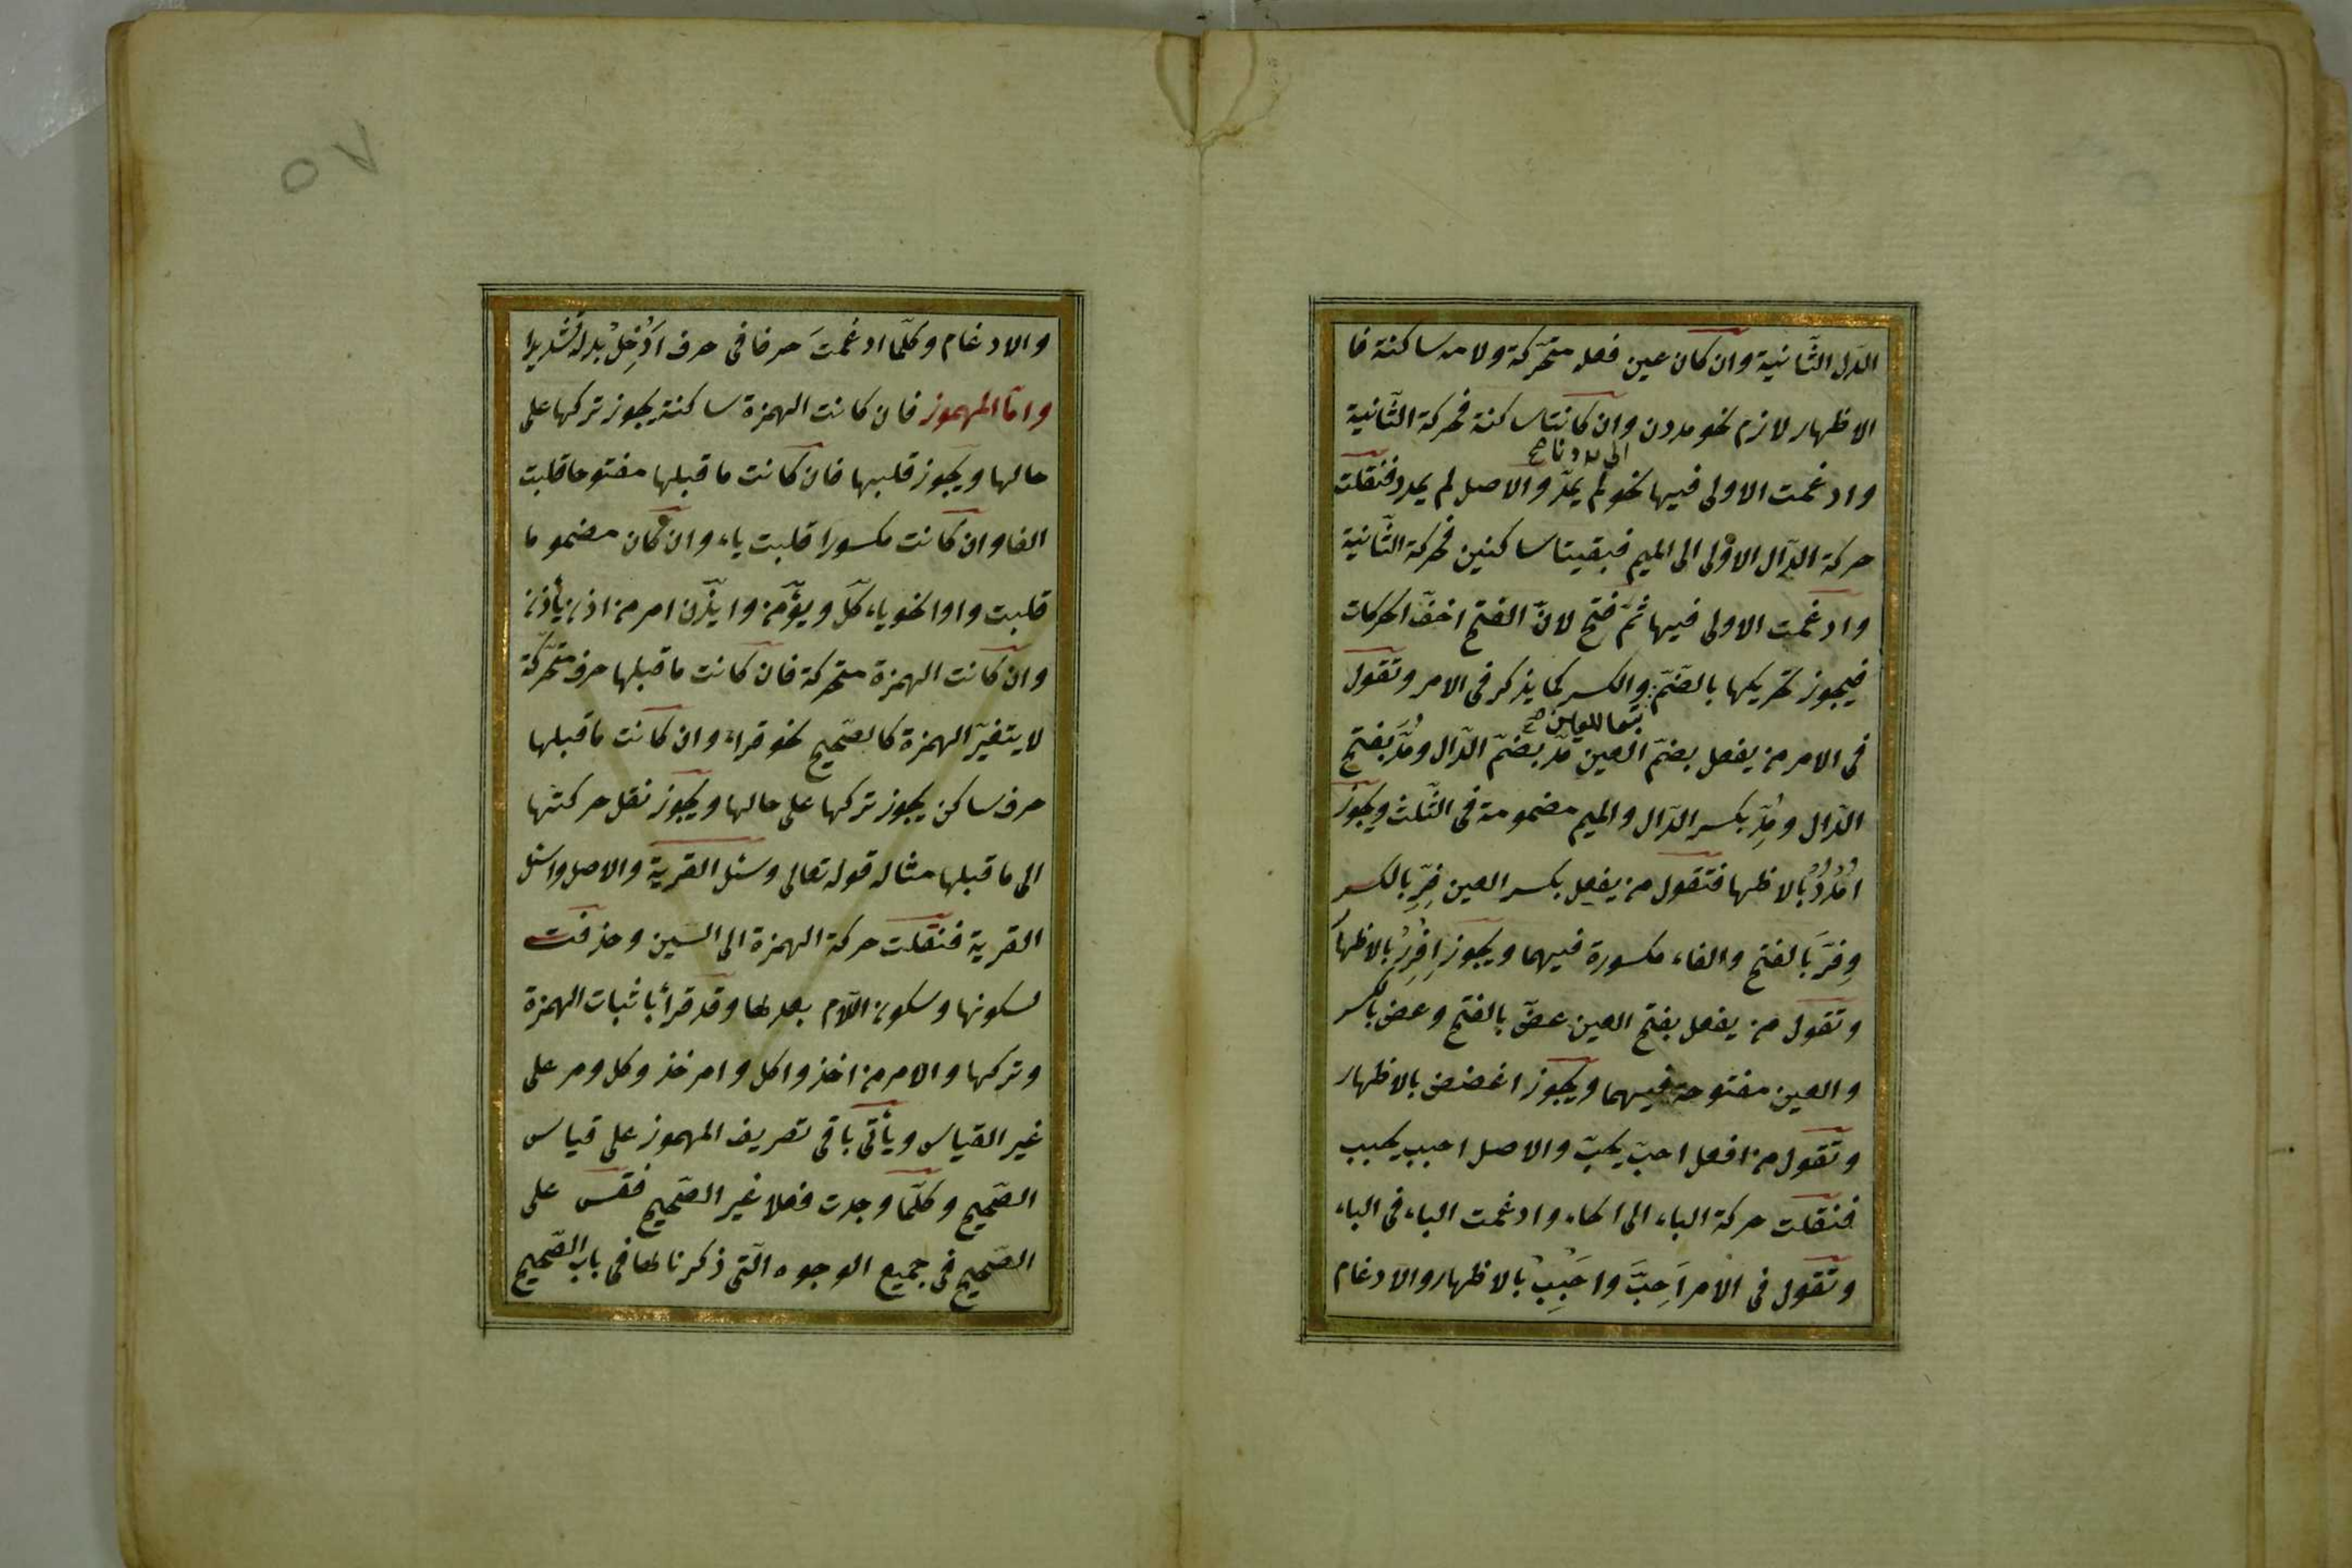 الدال الثّانية وان كان عين فعله متحّركة ولامه ساكنة فا
الاظهار لازم نحو مددن وان كانتا ساكنة فحركة الثّانية
الى مددنا صح
وادغمت الاولى فيها نحو لم يمدّ والاصل لم يمدد فنقلت
حركة الدّال الاوْلى الى الميم فبقيتا ساكنين فحركة الثّانية
وادغمت الاولى فيها ثمّ فتح لانّ الفتح اخفّ الحركات
فيجوز تحريكها بالضّمّ والكسر كما يذكر فى الامر وتقول
تبعا للعين صح
فى الامر من يفعل بضمّ العين مدّ بضمّ الدّال ومُدَّ بفتح
الدّال ومُدِّ بكسر الدّال والميم مضمومة فى الثّلث ويجوز
اُمْدُدْ بالاظها فتقول من يفعِل بكسر العين فِرِّ بالكسر
وفِرَّ بَالفتح والفاء مكسورة فيهما ويجوز اِفْرِرْ بالاظها
وتقول من يفعل بفتح العين عضّ بالفتح وعض بالكسر
والعين مفتوحة فيهما ويجوز اعضض بالاظهار
وتقول من افعل احبّ يحبّ والاصل احبب يحبب
فنقلت حركة الباء الى الحاء وادغمت الباء فى الباء
وتقول فى الامر اَحِبَّ واَحْبِبْ بالاظهار والادغام
٥٧
والادغام وكلّما ادغمتَ حرفا فى حرف اَدْخِلْ بدله تشديدا
وامّا المهموز فان كانت الهمزة ساكنة يجوز تركها على
حالها ويجوز قلبها فان كانت ما قبلها مفتوحا قلبت
الفا وان كانت مكسورا قلبت ياء وان كان مضموما
قلبت واوا نحو ياءكل ويؤمن وايذن امر من اذن يأذن
وان كانت الهمزة متحركة فان كانت ما قبلها حرف متحّركة
لا يتغيّر الهمزة كالصّحيح نحو قراء وان كانت ما قبلها
حرف ساكن يجوز تركها على حالها ويجوز نقل حركتها
الى ما قبلها مثاله قوله تعالى وسئل القرية والاصل واسئل
القرية فنقلت حركة الهمزة الى السين وحذفت
لسكونها وسكون اللام بعدها وقد قرأ باثبات الهمزة
وتركها والامر من اخذ واكل وامر خذ وكل ومر على
غير القياس ويأتى باقى تصريف المهموز على قياس
الصّحيح وكلّما وجدت فعلا غير الصّحيح فقس على
الصّحيح فى جميع الوجوه الّتى ذكرناها فى باب الصّحيح